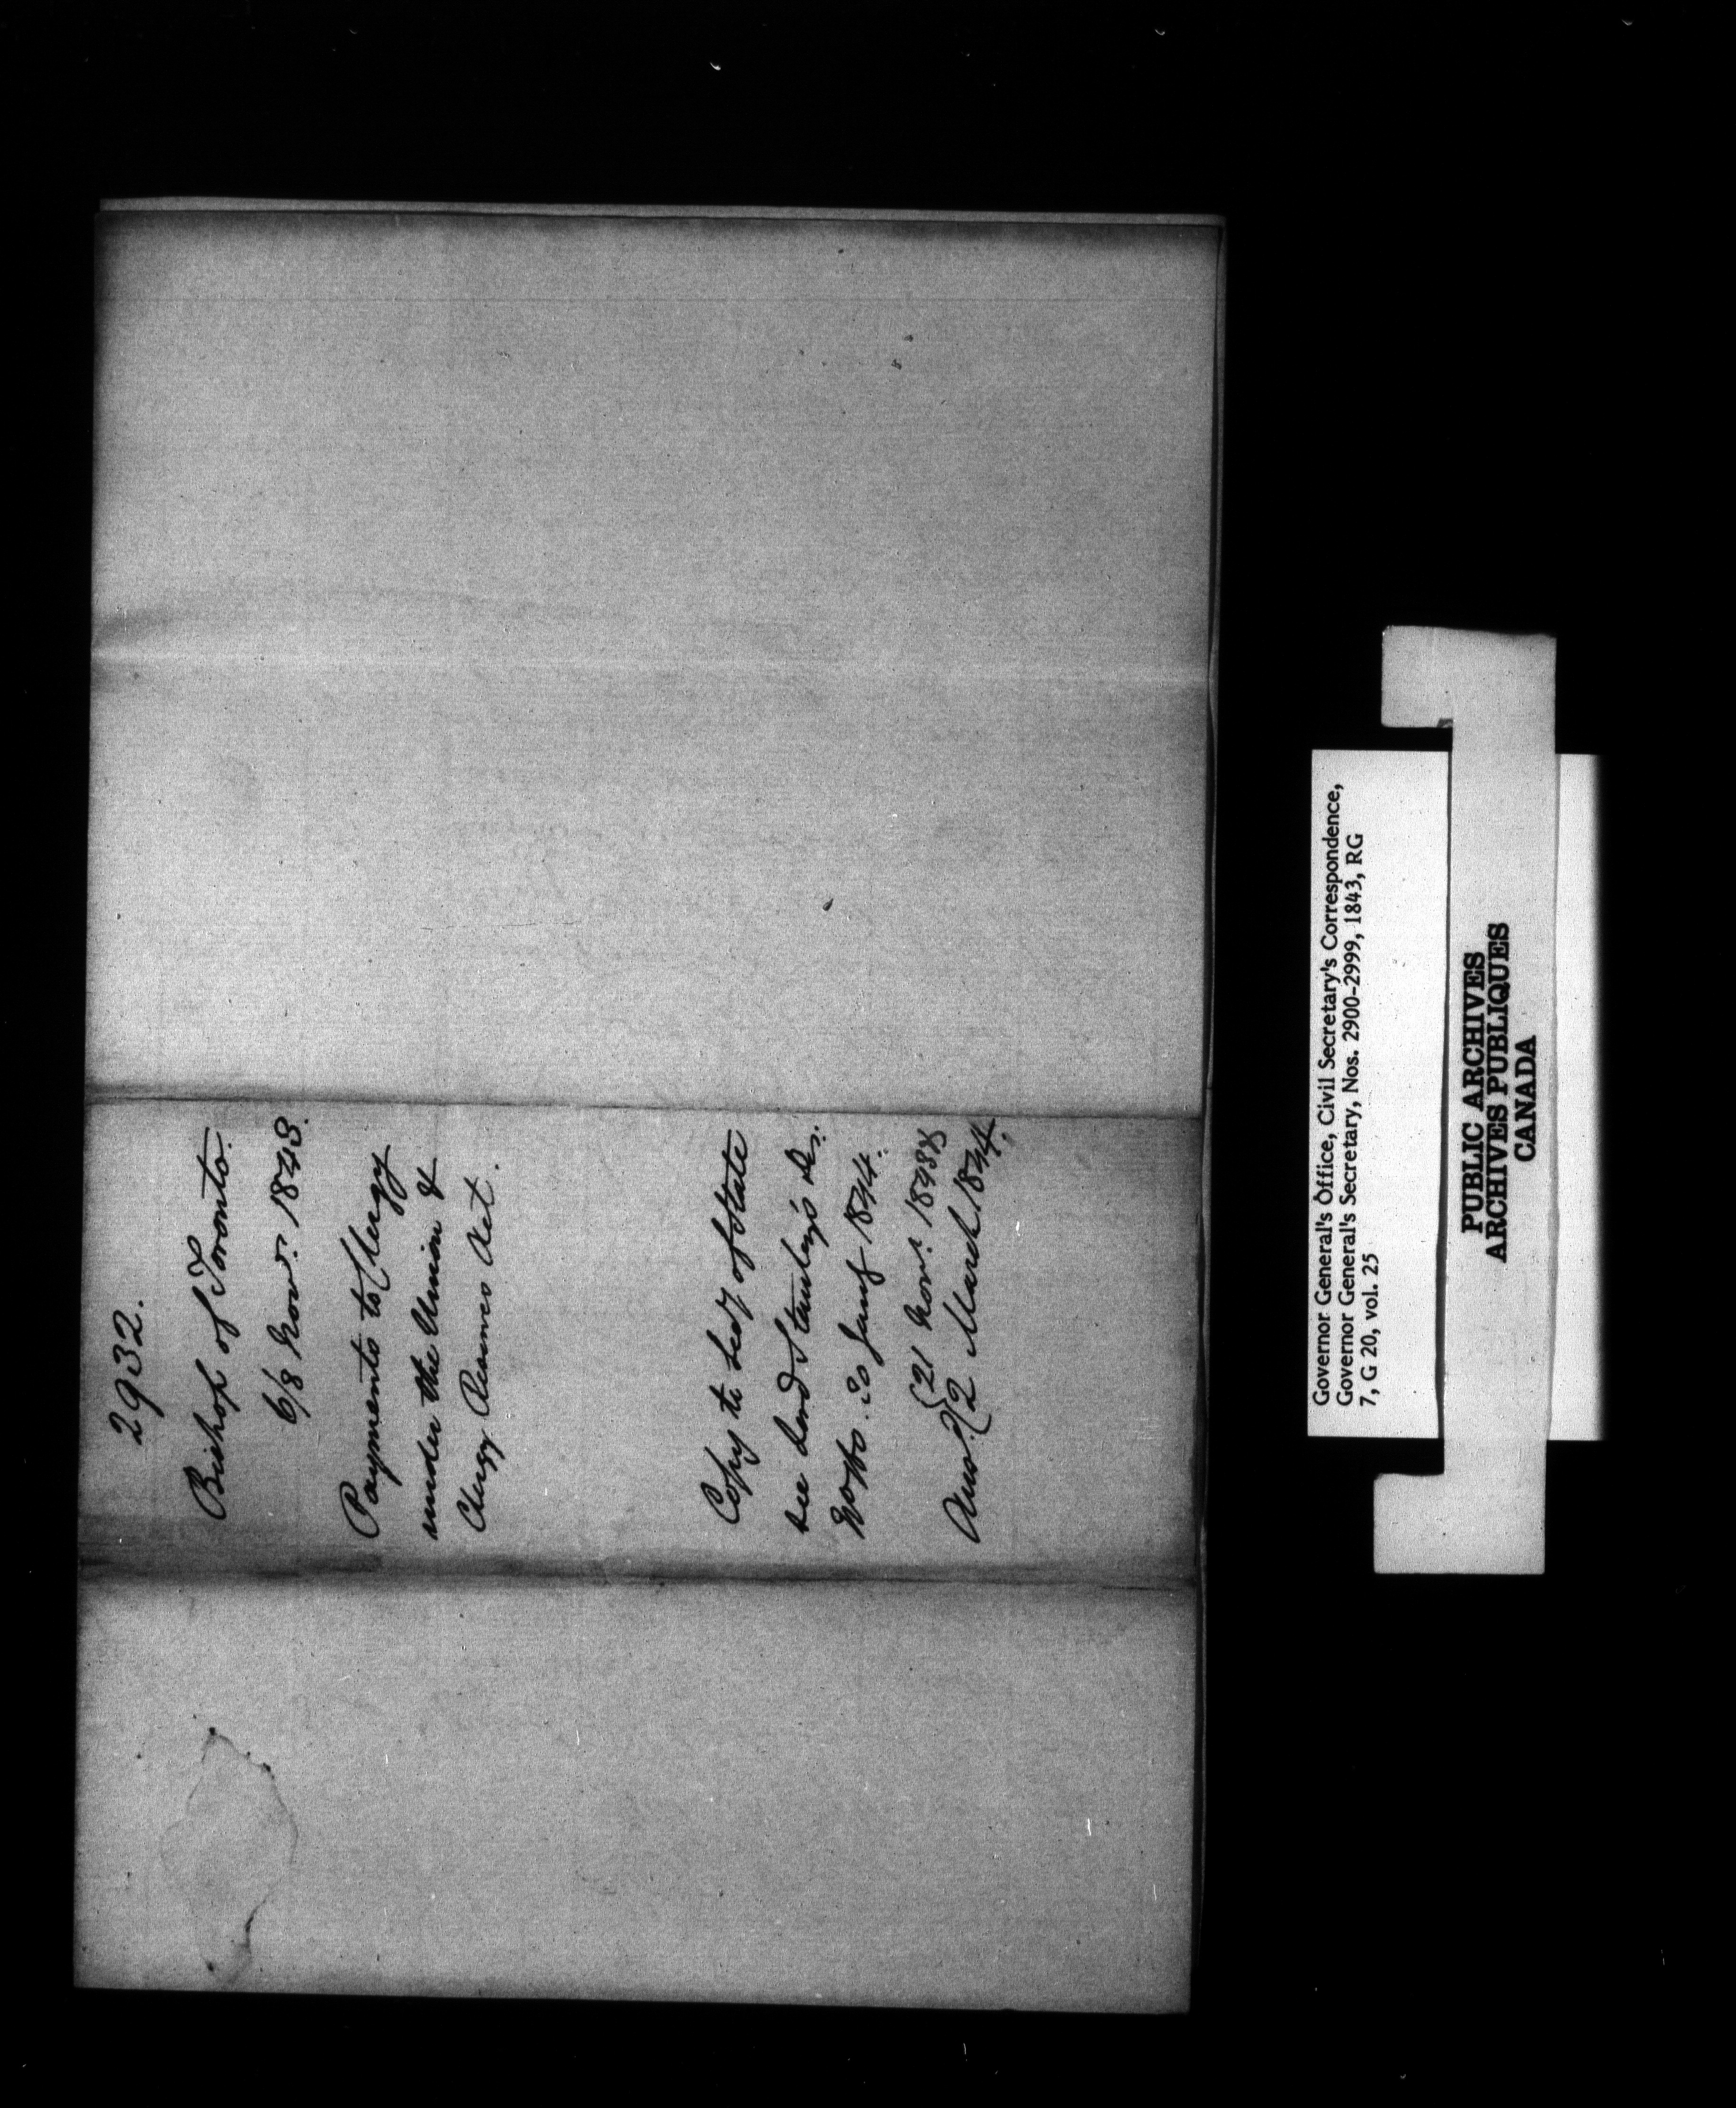 2932.
Bishop of Toronto.
6/8 Novr. 1843.
Payments to Clergy
under the Union &
Clergy Reserves Act.
Copy to Secy of State
see Lord Stanley's Des.
20 Jany 1844.
21 Novr. 1843
Answd. 2 March 1844.
Governor General's Office, Civil Secretary's Correspondence,
Governor General's Secretary, Nos. 2900-2999, 1843, RG
7, G 20, vol. 25
PUBLIC ARCHIVES
ARCHIVES PUBLIQUES
CANADA